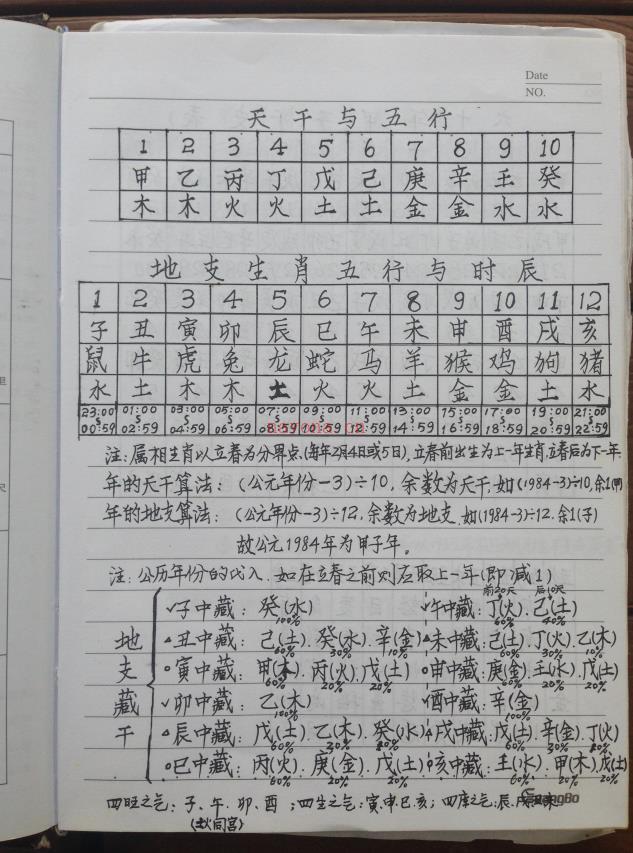 Date
NO.
天干与五行
1 2 3 4 5 6 7 8 9 10
甲 乙 丙 丁 戊 己 庚 辛 壬 癸
木 木 火 火 土 土 金 金 水 水
地支生肖五行与时辰
1 2 3 4 5 6 7 8 9 10 11 12
子 丑 寅 卯 辰 巳 午 未 申 酉 戌 亥
鼠 牛 虎 兔 龙 蛇 马 羊 猴 鸡 狗 猪
水 土 木 木 土 火 火 土 金 金 土 水
23:00 01:00 03:00 05:00 07:00 09:00 11:00 13:00 15:00 17:00 19:00 21:00
00:59 02:59 04:59 06:59 08:59 10:59 12:59 14:59 16:59 18:59 20:59 22:59
注:属相生肖以立春为分界点,(每年2月4日或5日),立春前出生为上一年生肖,立春后为下一年.
年的天干算法:(公元年份-3)÷10,余数为天干,如(1984-3)÷10,余1(甲)
年的地支算法:(公元年份-3)÷12,余数为地支,如(1984-3)÷12.余1(子)
故公元1984年为甲子年。
注:公历年份的代入.如在立春之前则应取上一年(即减1)
前20天 后10天
✓子中藏:癸(水) ✓午中藏:丁(火).己(土)
100% 60% 40%
△丑中藏:己(土).癸(水).辛(金) △未中藏:己(土).丁(火).乙(木)
60% 30% 10% 60% 30% 10%
○寅中藏:甲(木).丙(火).戊(土) ○申中藏:庚(金).壬(水).戊(土)
60% 20% 20% 60% 20% 20%
✓卯中藏:乙(木) ✓酉中藏:辛(金)
100% 100%
△辰中藏:戊(土).乙(木).癸(水) △戌中藏:戊(土).辛(金).丁(火)
60% 30% 60% 30%
○巳中藏:丙(火).庚(金).戊(土) ○亥中藏:壬(水).甲(木).戊(土)
60% 20% 20% 60% 20% 20%
地支藏干
四旺之气:子、午.卯.酉;四生之气:寅.申.巳.亥;四库之气:辰.戌.丑.未
(土火同宫)